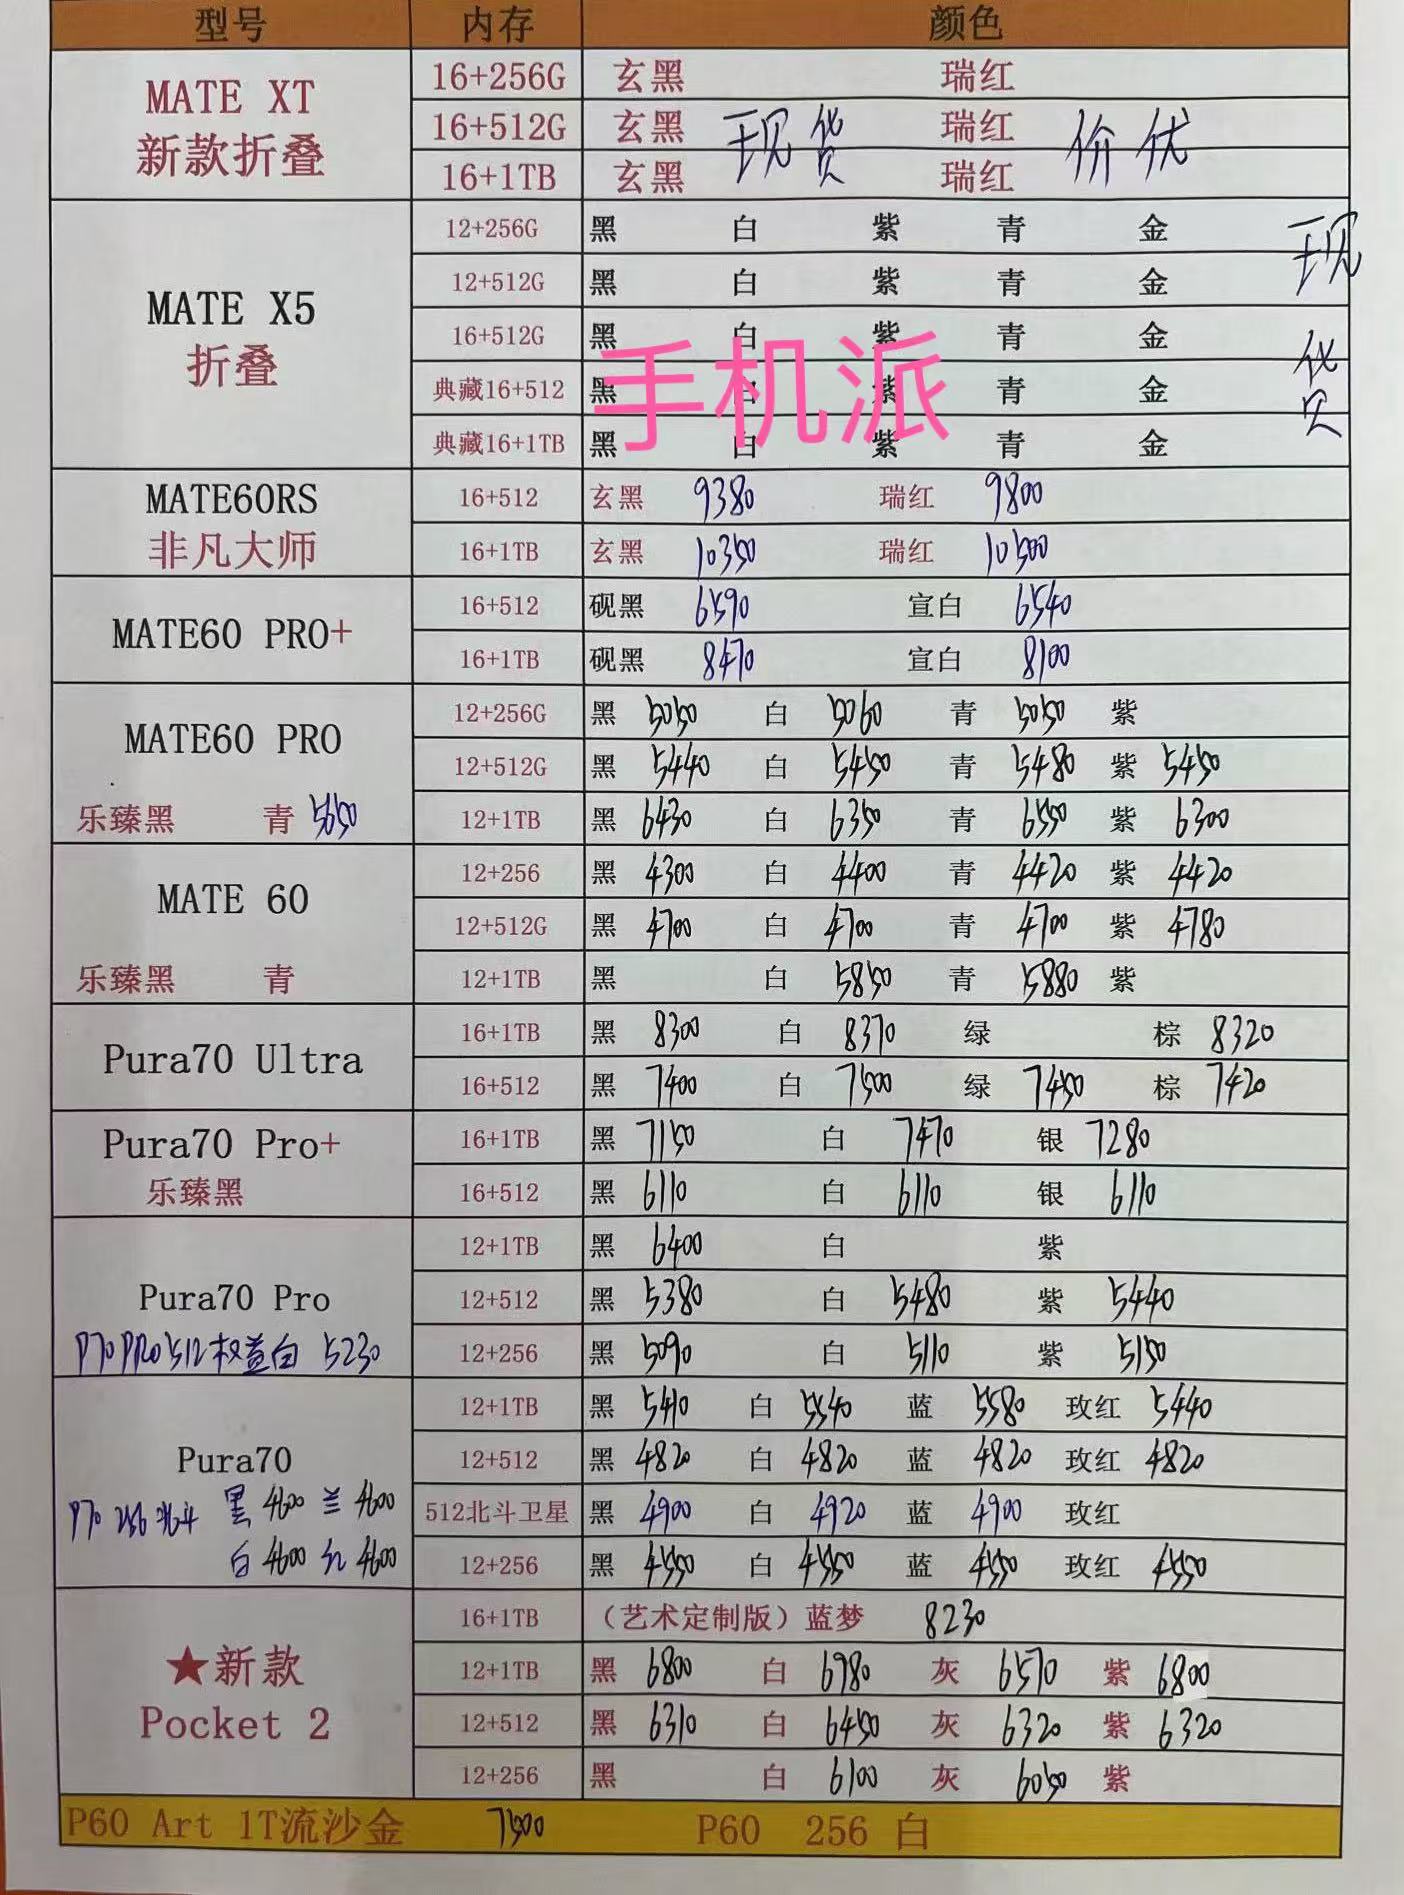 型号 内存 颜色
MATE XT 新款折叠 16+256G 玄黑 瑞红
16+512G 玄黑 瑞红
16+1TB 玄黑 瑞红
现货 价优
MATE X5 折叠 12+256G 黑 白 紫 青 金
12+512G 黑 白 紫 青 金
16+512G 黑 白 紫 青 金
典藏16+512 黑 白 紫 青 金
典藏16+1TB 黑 白 紫 青 金
现货
手机派
MATE60RS 16+512 玄黑 9380 瑞红 9800
非凡大师 16+1TB 玄黑 10350 瑞红 10500
MATE60 PRO+ 16+512 砚黑 6590 宣白 6540
16+1TB 砚黑 8470 宣白 8100
MATE60 PRO 12+256G 黑 5050 白 5060 青 5050 紫
12+512G 黑 5440 白 5450 青 5480 紫 5450
乐臻黑 青 5650 12+1TB 黑 6430 白 6350 青 6550 紫 6300
MATE 60 12+256 黑 4300 白 4400 青 4420 紫 4420
12+512G 黑 4700 白 4700 青 4700 紫 4780
乐臻黑 青 12+1TB 黑 白 5850 青 5880 紫
Pura70 Ultra 16+1TB 黑 8300 白 8370 绿 棕 8320
16+512 黑 7400 白 7500 绿 7450 棕 7420
Pura70 Pro+ 16+1TB 黑 7150 白 7470 银 7280
乐臻黑 16+512 黑 6110 白 6110 银 6110
12+1TB 黑 6400 白 紫
Pura70 Pro 12+512 黑 5380 白 5480 紫 5440
P70 PRO 512权益白 5230 12+256 黑 5090 白 5110 紫 5150
12+1TB 黑 5410 白 5540 蓝 5580 玫红 5440
Pura70 12+512 黑 4820 白 4820 蓝 4820 玫红 4820
P70 256 北斗 黑 4600 兰 4600 512北斗卫星 黑 4900 白 4920 蓝 4900 玫红
白 4600 红 4600 12+256 黑 4550 白 4550 蓝 4550 玫红 4550
16+1TB （艺术定制版）蓝梦 8230
★新款 12+1TB 黑 6800 白 6980 灰 6570 紫 6800
Pocket 2 12+512 黑 6310 白 6450 灰 6320 紫 6320
12+256 黑 白 6100 灰 6050 紫
P60 Art 1T流沙金 7500 P60 256 白